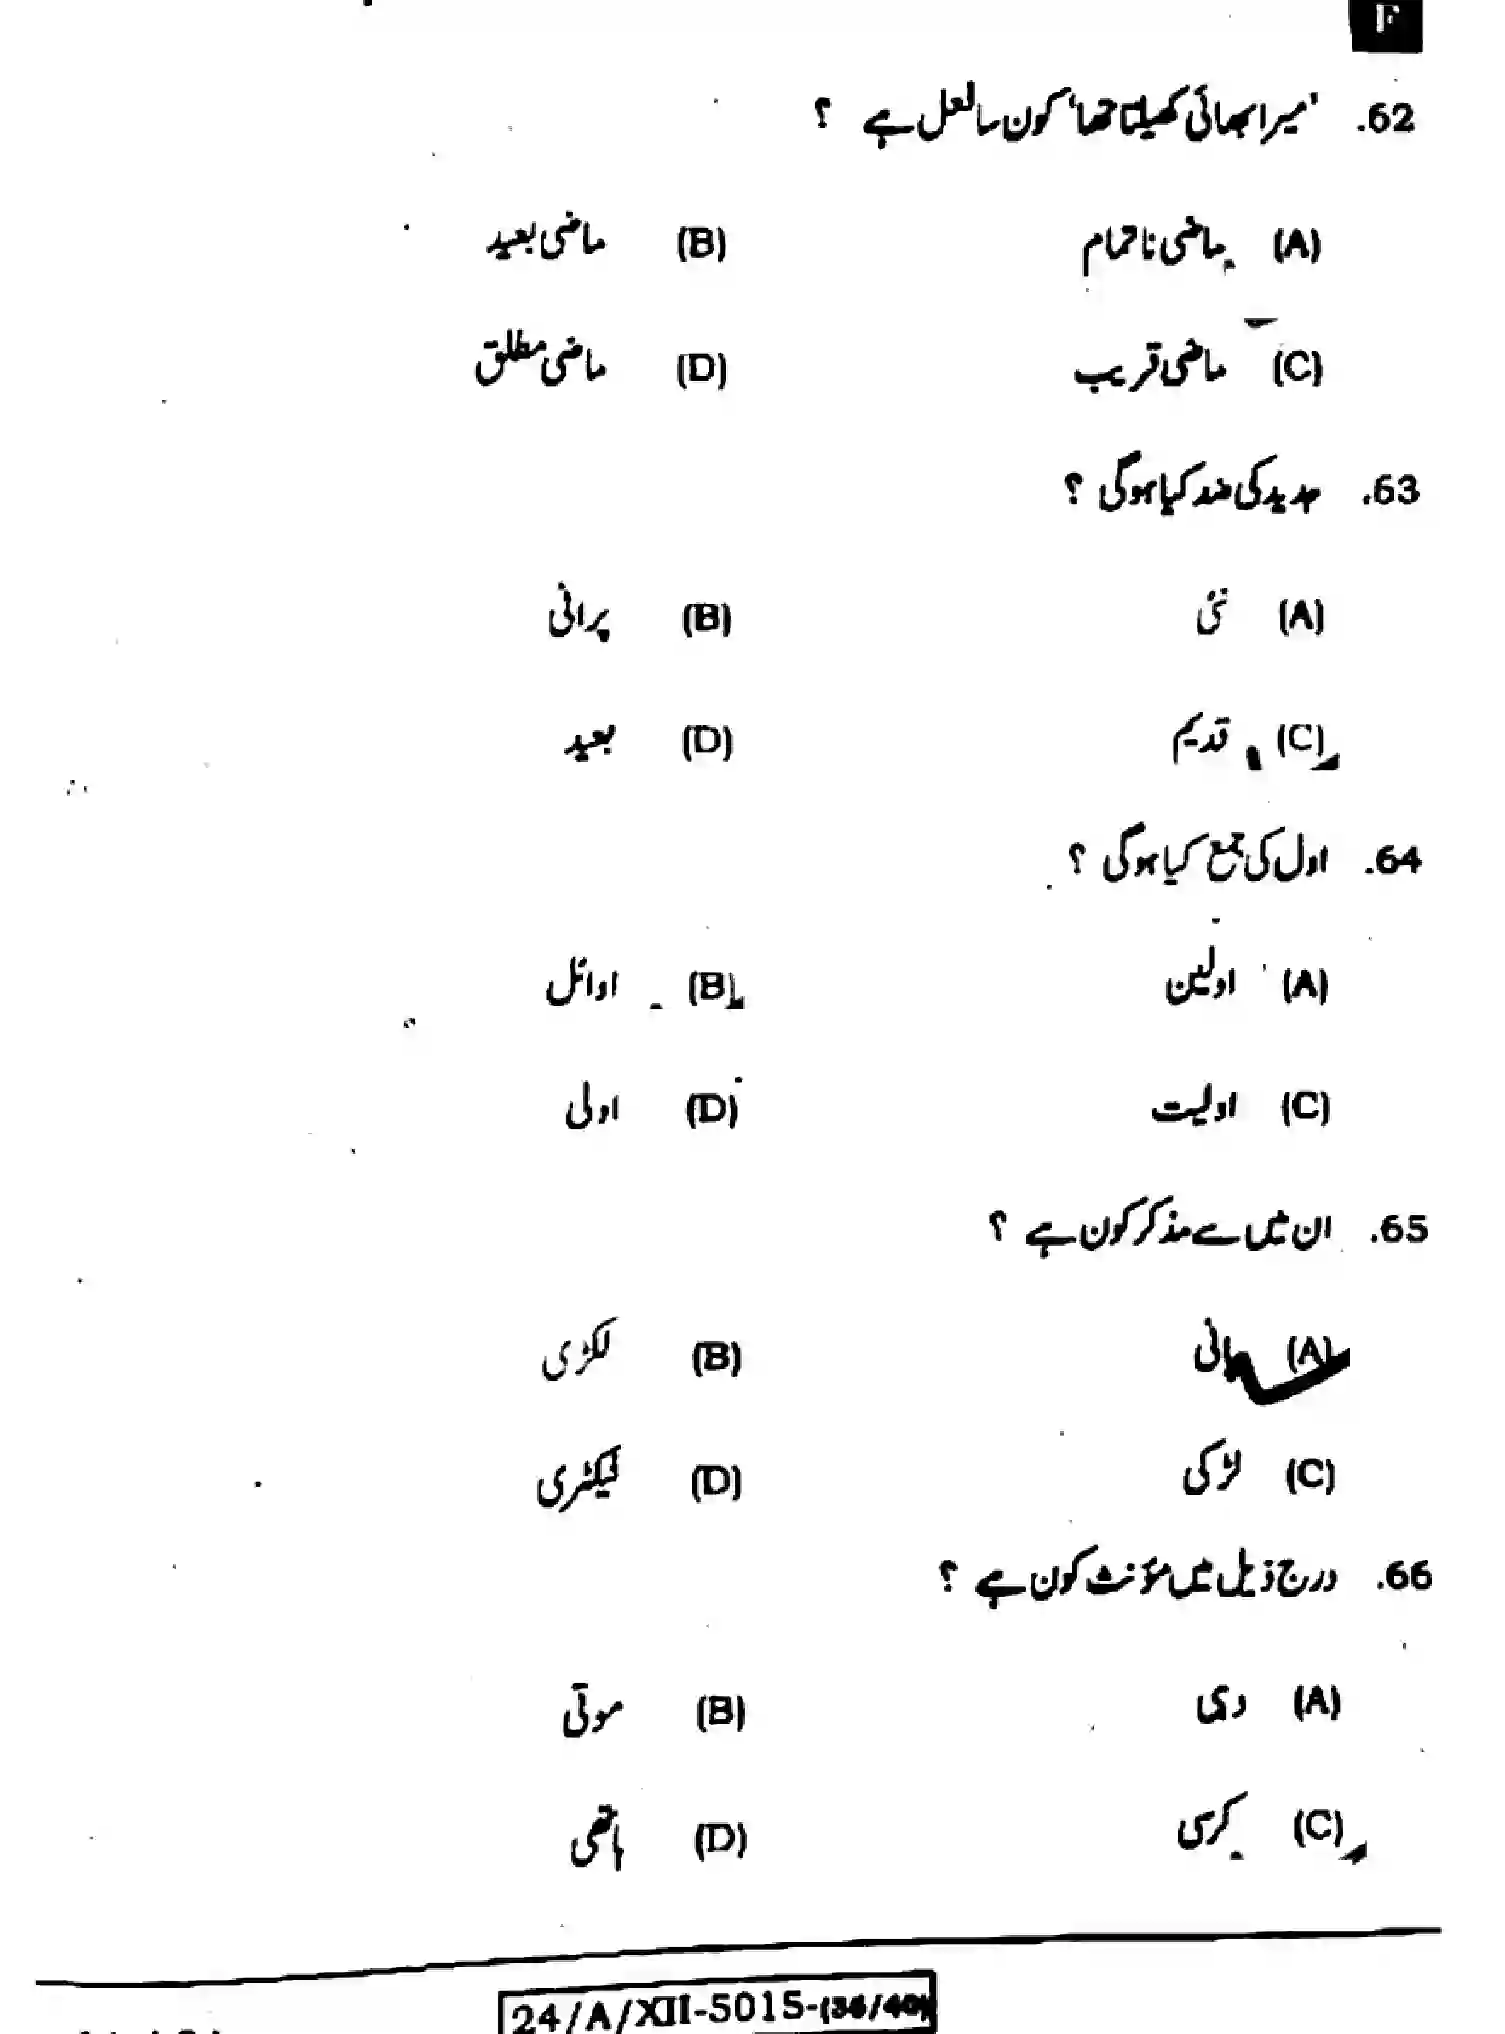 F
62. 'میرا بھائی کھیلتا تھا' کون سا فعل ہے ؟
(A) ماضی ناتمام (B) ماضی بعید
(C) ماضی قریب (D) ماضی مطلق
63. جدید کی ضد کیا ہوگی ؟
(A) نئی (B) پرانی
(C) قدیم (D) بعید
64. اول کی جمع کیا ہوگی ؟
(A) اولین (B) اوائل
(C) اولیت (D) اولی
65. ان میں سے مذکر کون ہے ؟
(A) پانی (B) لکڑی
(C) لڑکی (D) فیکٹری
66. درج ذیل میں مؤنث کون ہے ؟
(A) دہی (B) موتی
(C) کرسی (D) ہاتھی
24/A/XII-5015-(36/40)